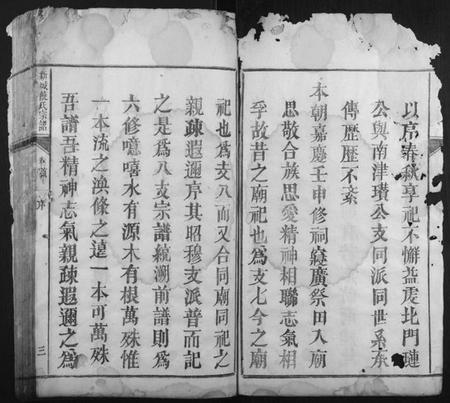 以序春秋享祀不懈益虔北門璉
公與南津瓚公支同派同世系亦
傳歷歷不紊
本朝嘉慶壬申修祠莚廣祭田入廟
思敬合族思愛精神相聯志氣相
孚故昔之廟祀也爲支七今之廟
祀也爲支八而又合同廟同祀之
親疎遐邇序其昭穆支派普而記
之是爲八支宗譜統溯前譜則爲
六修噫嘻水有源木有根萬殊惟
一本流之渙條之遠一本可萬殊
吾譜吾精神志氣親疎遐邇之爲
城 氏宗譜
序
三